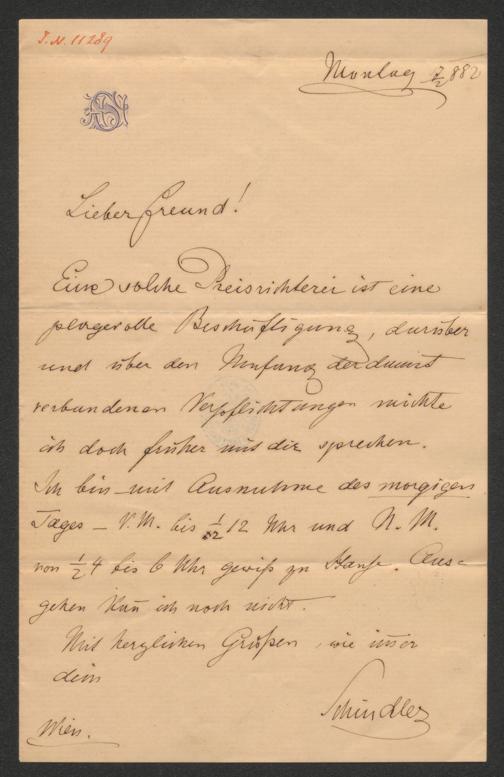 I.N. 11289
Montag 7/2 882
Lieber Freund!
Eine solche Preisrichterei ist eine
plagevolle Beschäftigung, darüber
und über den Umfang der damit
verbundenen Verpflichtungen möchte
ich doch früher mit dir sprechen.
Ich bin mit Ausnahme des morgigen
Tages – V.M. bis 1/2 12 Uhr und N.M.
von 1/2 4 bis 6 Uhr gewiß zu Hause. Aus=
gehen kañ ich noch nicht.
Mit herzlichen Grüßen, wie im̃er
dein
Schindler
Wien.